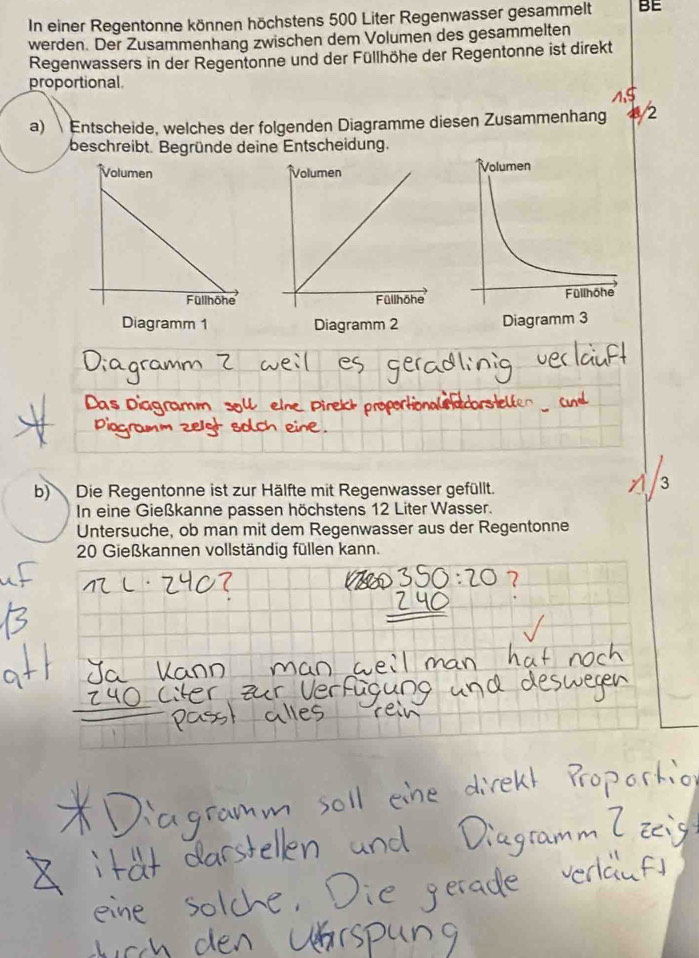 In einer Regentonne können höchstens 500 Liter Regenwasser gesammelt
BE
werden. Der Zusammenhang zwischen dem Volumen des gesammelten
Regenwassers in der Regentonne und der Füllhöhe der Regentonne ist direkt
proportional.
1,5
a) Entscheide, welches der folgenden Diagramme diesen Zusammenhang /2
beschreibt. Begründe deine Entscheidung.
Volumen Volumen Volumen
Füllhöhe Füllhöhe Füllhöhe
Diagramm 1 Diagramm 2 Diagramm 3
Diagramm 2 weil es geradlinig verläuft
Das Diagramm soll eine Direkt proportionalität darstellen und
Diagramm zeigt solch eine.
b) Die Regentonne ist zur Hälfte mit Regenwasser gefüllt. 1/3
In eine Gießkanne passen höchstens 12 Liter Wasser.
Untersuche, ob man mit dem Regenwasser aus der Regentonne
20 Gießkannen vollständig füllen kann.
uf 12 L · 240? 350:20?
240
B
Ja kann man weil man hat noch
att 240 Liter zur Verfügung und deswegen
passt alles rein
* Diagramm soll eine direkt Proportio
ität darstellen und Diagramm 2 zeig
eine solche. Die gerade verläuft
durch den Uhrspung